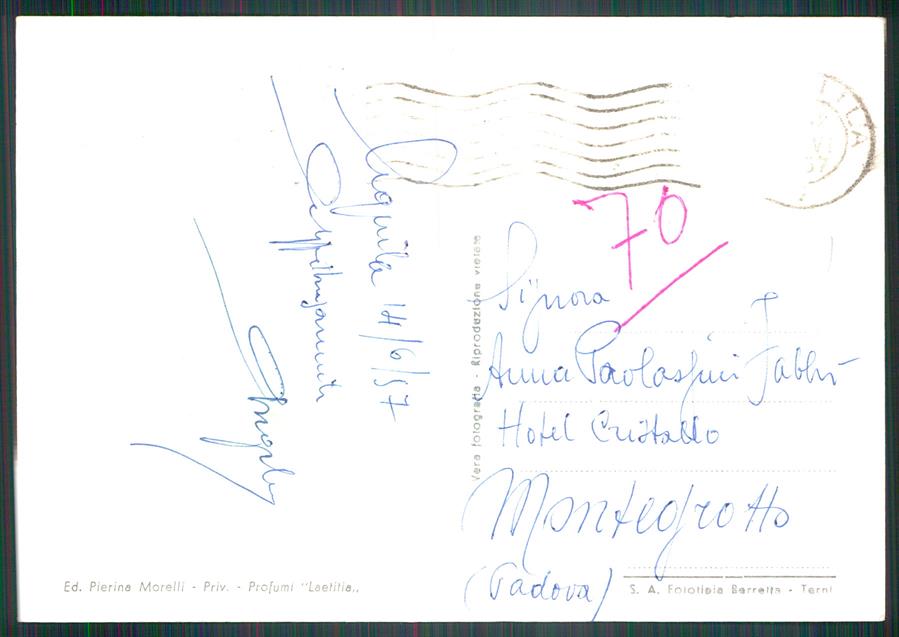 Aquila 14/6/57
70
Signora
Anna Paolassini Fabbri
Hotel Cristallo
Montegrotto
(Padova)
Vera fotografia - Riproduzione vietata
Ed. Pierina Morelli - Priv. - Profumi "Laetitia,,
S. A. Fototipia Berretta - Terni